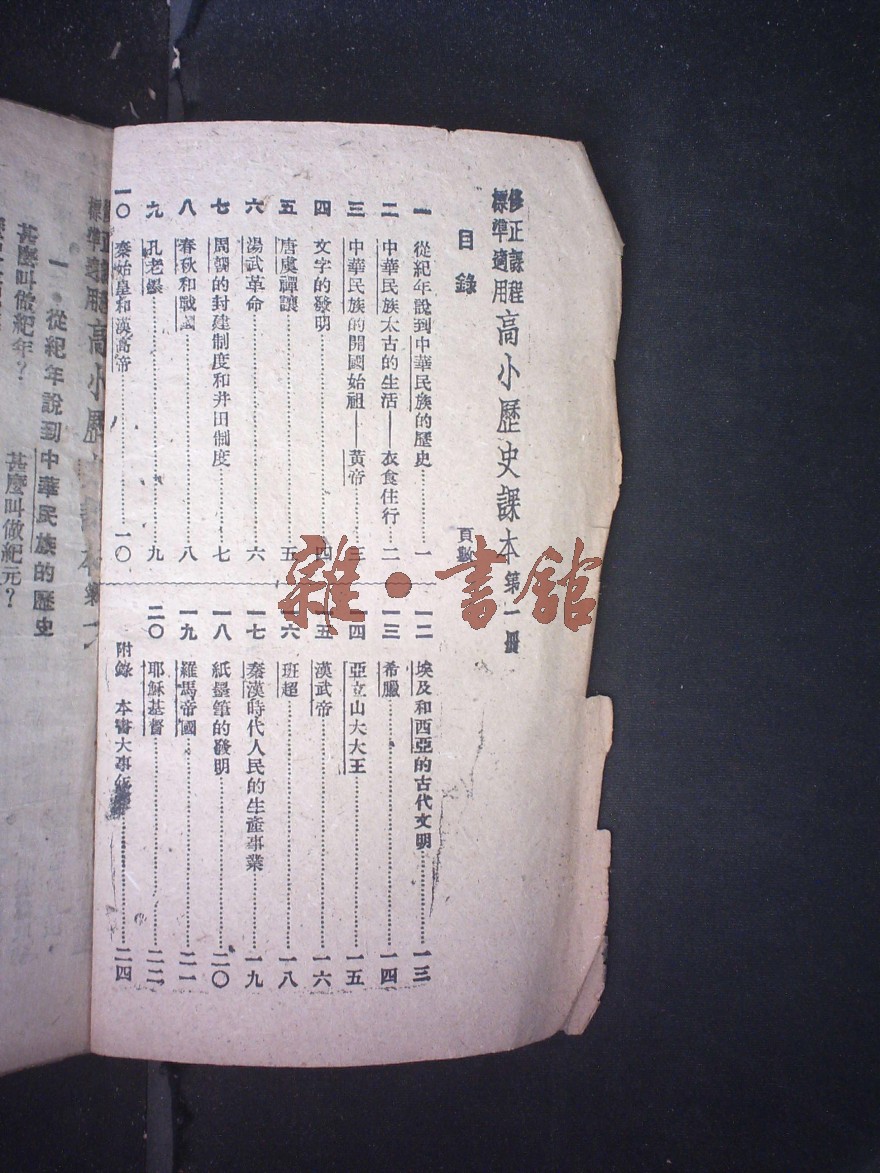 修正課程標準適用 高小歷史課本 第一冊
目錄 頁數
一 從紀年說到中華民族的歷史 一
二 中華民族太古的生活——衣食住行 二
三 中華民族的開國始祖——黃帝 三
四 文字的發明 四
五 唐虞禪讓 五
六 湯武革命 六
七 周朝的封建制度和井田制度 七
八 春秋和戰國 八
九 孔老墨 九
一〇 秦始皇和漢高帝 一〇
一二 埃及和西亞的古代文明 一三
一三 希臘 一四
一四 亞立山大大王 一五
一五 漢武帝 一六
一六 班超 一八
一七 秦漢時代人民的生產事業 一九
一八 紙墨筆的發明 二〇
一九 羅馬帝國 二一
二〇 耶穌基督 二二
附錄 本書大事年表 二四
雜·書館
高小歷
一·從紀年說到中華民族的歷史
甚麼叫做紀年？ 甚麼叫做紀元？